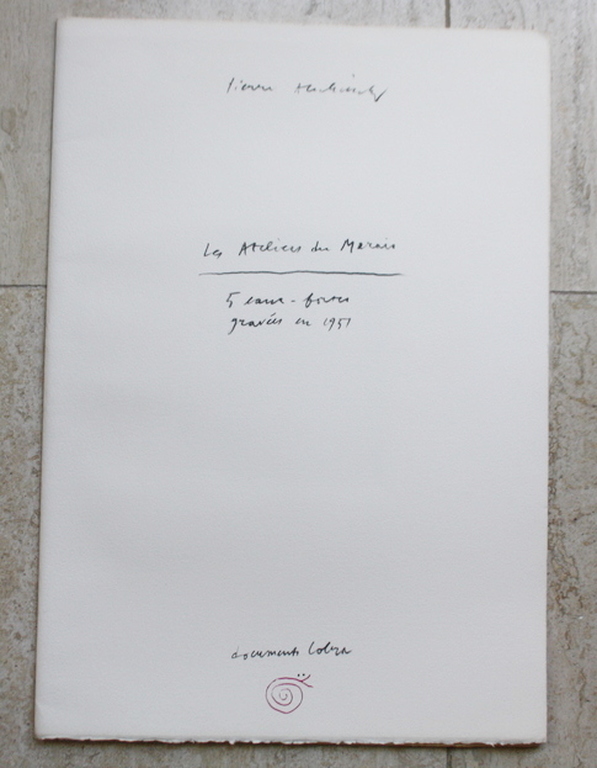 Pierre Alechinsky
Les Ateliers du Marais
5 eaux-fortes
gravées en 1951
documents Cobra